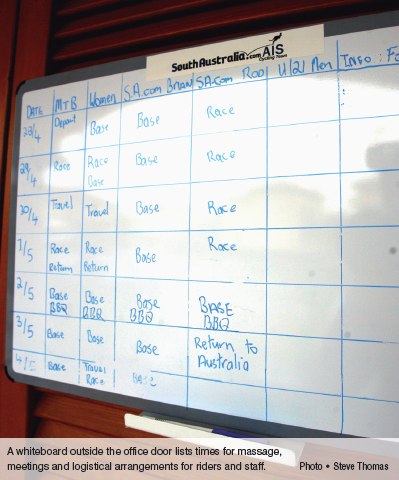 SouthAustralia.com AIS
Cycling Team
DATE MTB Women S.A.com Brian S.A.com Rod U/21 Men Info: Fo
28/4 Depart Base Base Race
29/4 Race Race Base Base Race
30/4 Travel Travel Base Race
1/5 Race Return Race Return Base Race
2/5 Base BBQ Base BBQ Base BBQ BASE BBQ
3/5 Base Base Base Return to Australia
Base Travel Race Base
A whiteboard outside the office door lists times for massage,
meetings and logistical arrangements for riders and staff.
Photo • Steve Thomas